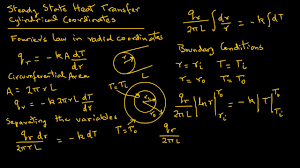 Steady State Heat Transfer
Cylindrical Coordinates
Fourier's Law in radial coordinates
qr = - k A dT/dr
Circumferential Area
A = 2πrL
qr = - k 2πrL dT/dr
Separating the variables
qr dr / 2πrL = - k dT
r
L
T = Ti
T = To
qr / 2πL ∫ dr/r = - k ∫ dT
Boundary Conditions
r = ri T = Ti
r = ro T = To
qr / 2πL | ln r | ro ri = - k | T | To Ti
qr / 2πL